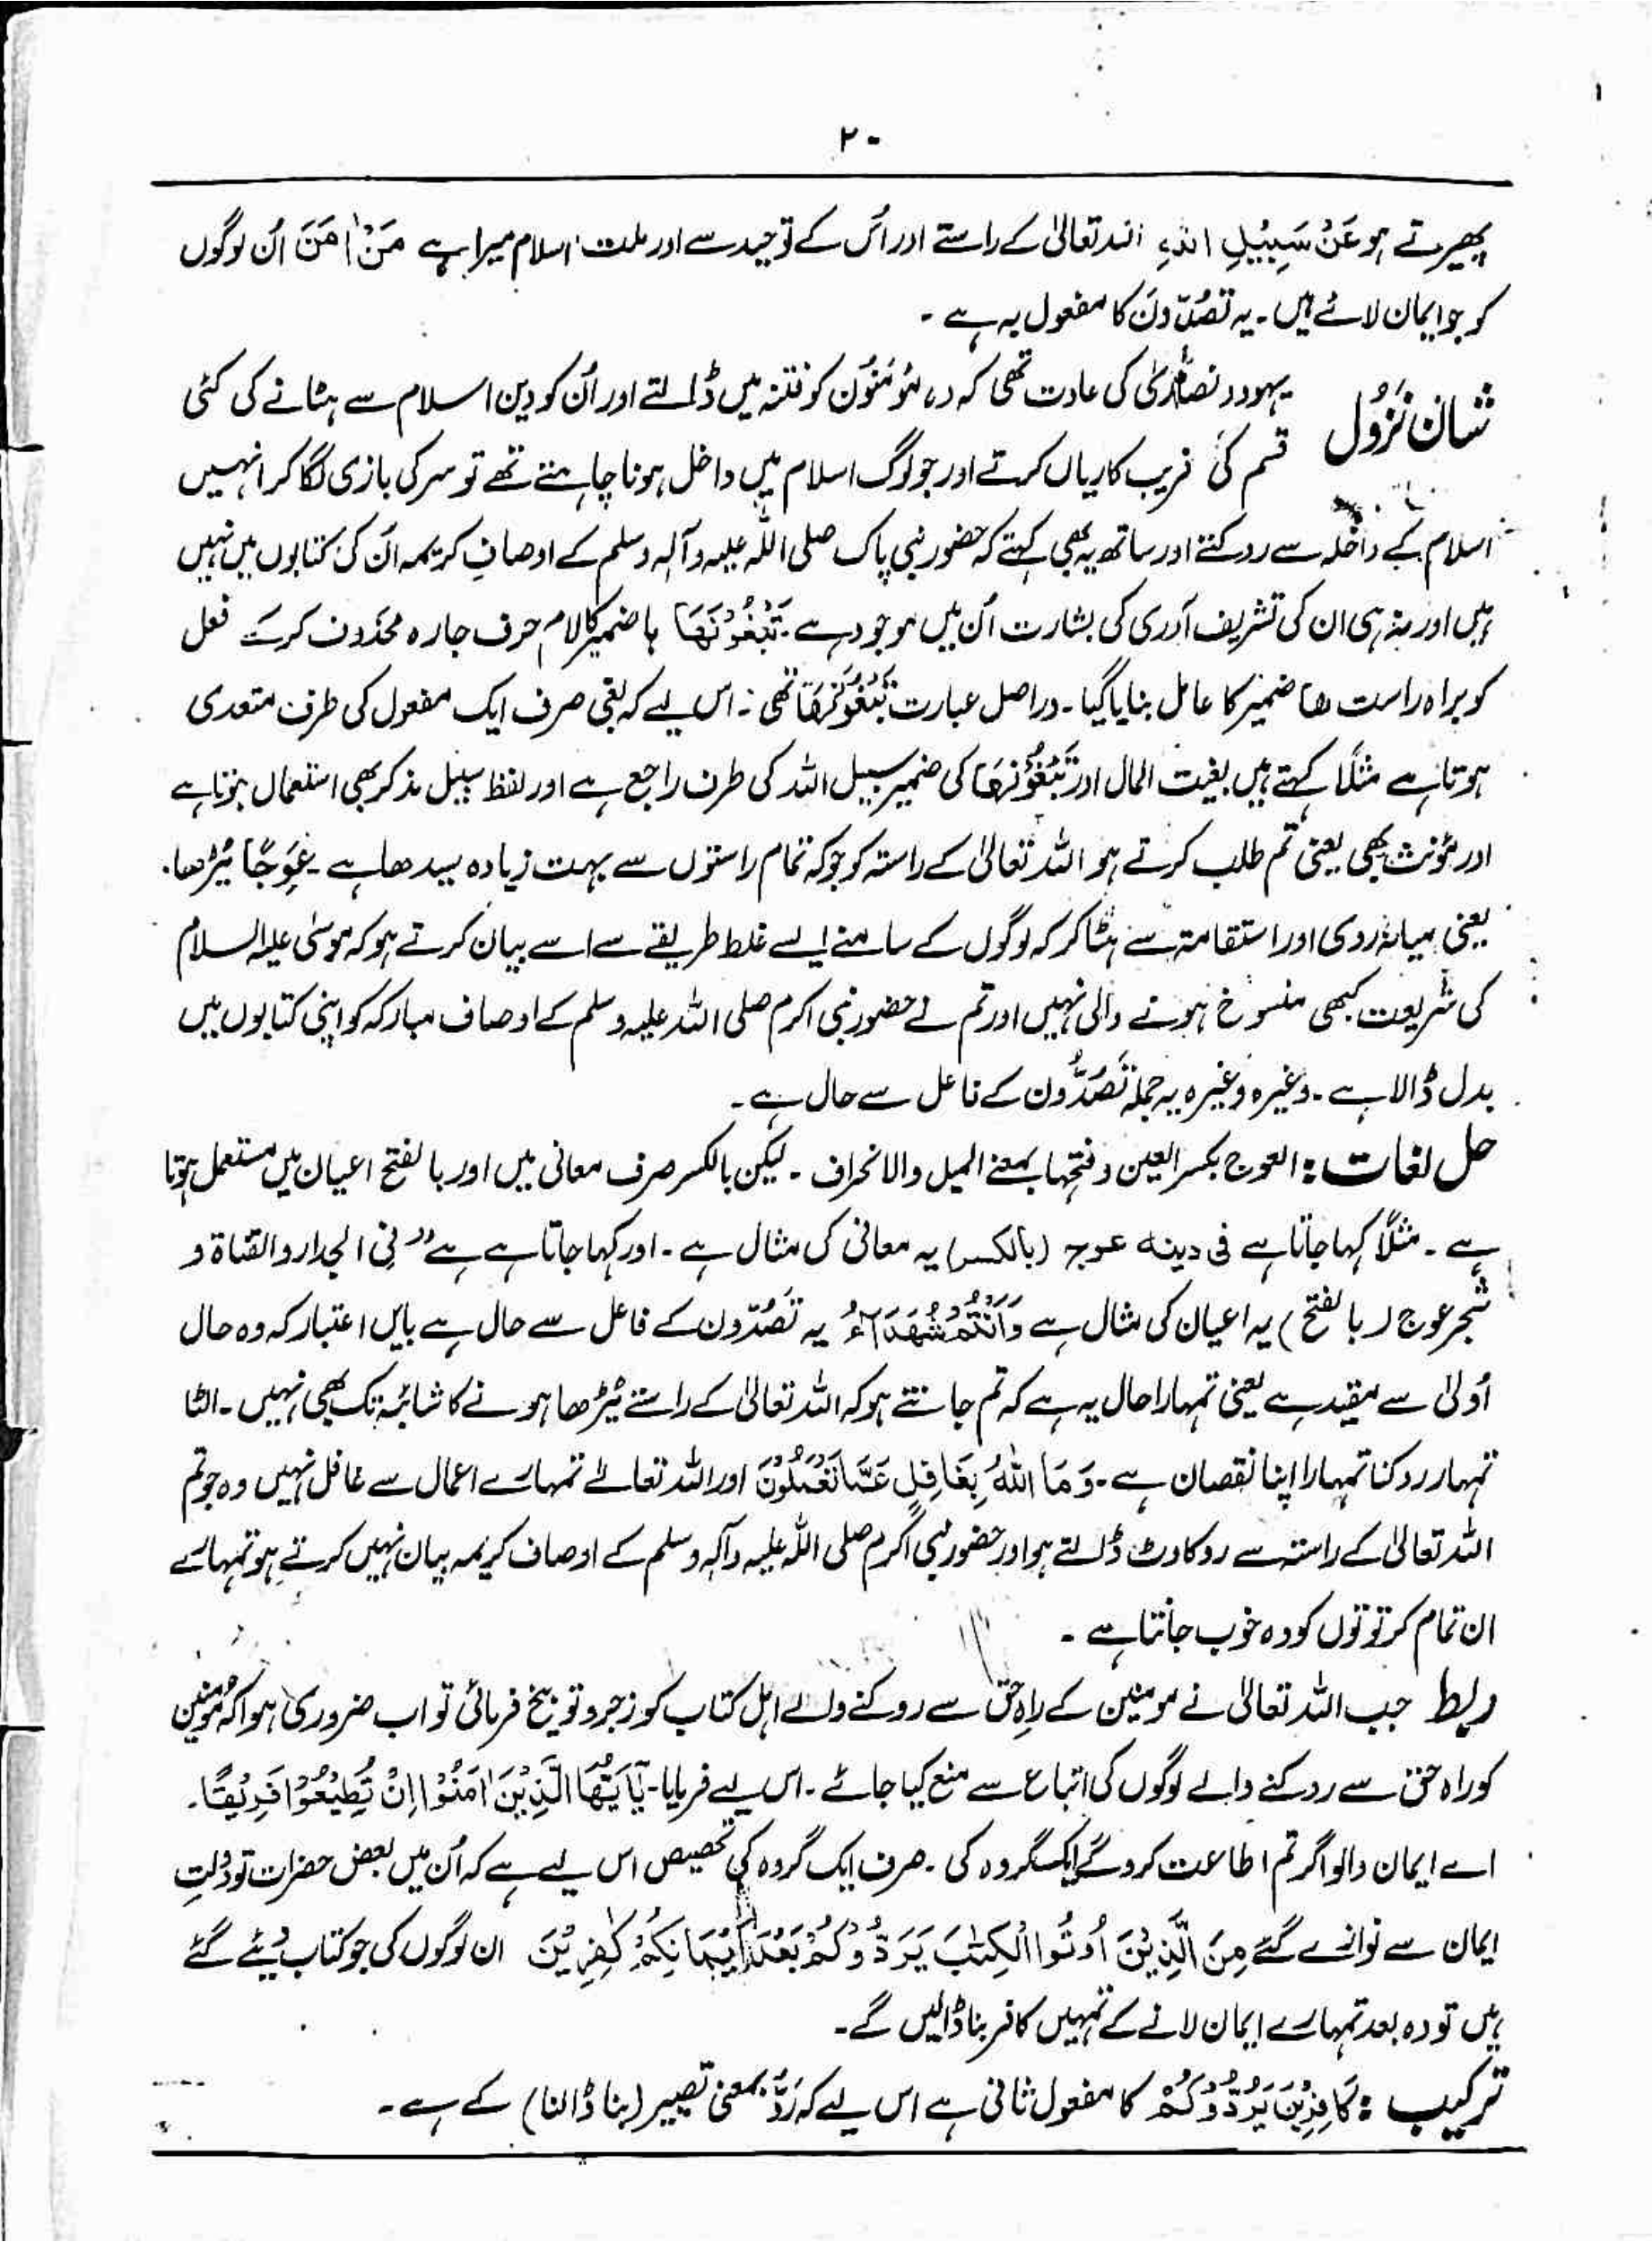 ۲۰
پھیرتے ہو عَنْ سَبِيْلِ اللهِ اللہ تعالیٰ کے راستے اور اُس کے توحید سے اور ملت اسلام میرا ہے مَنْ اٰمَنَ اُن لوگوں
کو جو ایمان لائے ہیں۔ یہ تَصُدُّوْنَ کا مفعول بہ ہے۔
شان نزول یہود و نصاریٰ کی عادت تھی کہ وہ مؤمنوں کو فتنہ میں ڈالتے اور اُن کو دین اسلام سے ہٹانے کی کئی
قسم کی فریب کاریاں کرتے اور جو لوگ اسلام میں داخل ہونا چاہتے تھے تو سر کی بازی لگا کر انہیں
اسلام کے داخلہ سے روکتے اور ساتھ یہ بھی کہتے کہ حضور نبی پاک صلی اللہ علیہ وآلہ وسلم کے اوصافِ کریمہ اُن کی کتابوں میں نہیں
ہیں اور نہ ہی ان کی تشریف آوری کی بشارت اُن میں موجود ہے۔ تَبْغُوْنَهَا ہا ضمیر کا لام حرف جارہ محذوف کرکے فعل
کو براہ راست ھا ضمیر کا عامل بنایا گیا۔ دراصل عبارت تَبْغُوْنَ لَهَا تھی۔ اس لیے کہ بغی صرف ایک مفعول کی طرف متعدی
ہوتا ہے مثلاً کہتے ہیں بغیت المال اور تَبْغُوْنَهَا کی ضمیر سبیل اللہ کی طرف راجع ہے اور لفظ سبیل مذکر بھی استعمال ہوتا ہے
اور مؤنث بھی یعنی تم طلب کرتے ہو اللہ تعالیٰ کے راستہ کو جو کہ تمام راستوں سے بہت زیادہ سیدھا ہے۔ عِوَجًا ٹیڑھا۔
یعنی میانہ روی اور استقامت سے ہٹا کر کہ لوگوں کے سامنے ایسے غلط طریقے سے اسے بیان کرتے ہو کہ موسیٰ علیہ السلام
کی شریعت کبھی منسوخ ہونے والی نہیں اور تم نے حضور نبی اکرم صلی اللہ علیہ وسلم کے اوصاف مبارکہ کو اپنی کتابوں میں
بدل ڈالا ہے۔ وغیرہ وغیرہ یہ جملہ تَصُدُّوْن کے فاعل سے حال ہے۔
حل لغات : العوج بکسر العین و فتحہا بمعنے المیل والانحراف۔ لیکن بالکسر صرف معانی میں اور بالفتح اعیان میں مستعمل ہوتا
ہے۔ مثلاً کہا جاتا ہے فی دینہ عوج (بالکسر) یہ معانی کی مثال ہے۔ اور کہا جاتا ہے ہے ”فی الجدار والقناۃ و
شجر عوج (بالفتح) یہ اعیان کی مثال ہے وَاَنْتُمْ شُهَدَآءُ یہ تَصُدُّون کے فاعل سے حال ہے بایں اعتبار کہ وہ حال
اُولیٰ سے مقید ہے یعنی تمہارا حال یہ ہے کہ تم جانتے ہو کہ اللہ تعالیٰ کے راستے ٹیڑھا ہونے کا شائبہ تک بھی نہیں۔ الٹا
تمہارا روکنا تمہارا اپنا نقصان ہے۔ وَمَا اللهُ بِغَافِلٍ عَمَّا تَعْمَلُوْنَ اور اللہ تعالےٰ تمہارے اعمال سے غافل نہیں وہ جو تم
اللہ تعالیٰ کے راستہ سے روکاوٹ ڈالتے ہو اور حضور نبی اکرم صلی اللہ علیہ وآلہ وسلم کے اوصاف کریمہ بیان نہیں کرتے ہو تمہارے
ان تمام کرتوتوں کو وہ خوب جانتا ہے۔
ربط جب اللہ تعالیٰ نے مومنین کے راہِ حق سے روکنے والے اہل کتاب کو زجر و توبیخ فرمائی تو اب ضروری ہوا کہ مؤمنین
کو راہ حق سے روکنے والے لوگوں کی اتباع سے منع کیا جائے۔ اس لیے فرمایا۔ يٰٓاَيُّهَا الَّذِيْنَ اٰمَنُوْا اِنْ تُطِيْعُوْا فَرِيْقًا۔
اے ایمان والو اگر تم اطاعت کرو گے ایک گروہ کی۔ صرف ایک گروہ کی تخصیص اس لیے ہے کہ اُن میں بعض حضرات تو دولتِ
ایمان سے نوازے گئے مِنَ الَّذِيْنَ اُوْتُوا الْكِتٰبَ يَرُدُّوْكُمْ بَعْدَ اِيْمَانِكُمْ كٰفِرِيْنَ ان لوگوں کی جو کتاب دیئے گئے
ہیں تو وہ بعد تمہارے ایمان لانے کے تمہیں کافر بنا ڈالیں گے۔
ترکیب : كَافِرِيْنَ يَرُدُّوْكُمْ کا مفعول ثانی ہے اس لیے کہ رَدَّ بمعنی تصییر (بنا ڈالنا) کے ہے۔